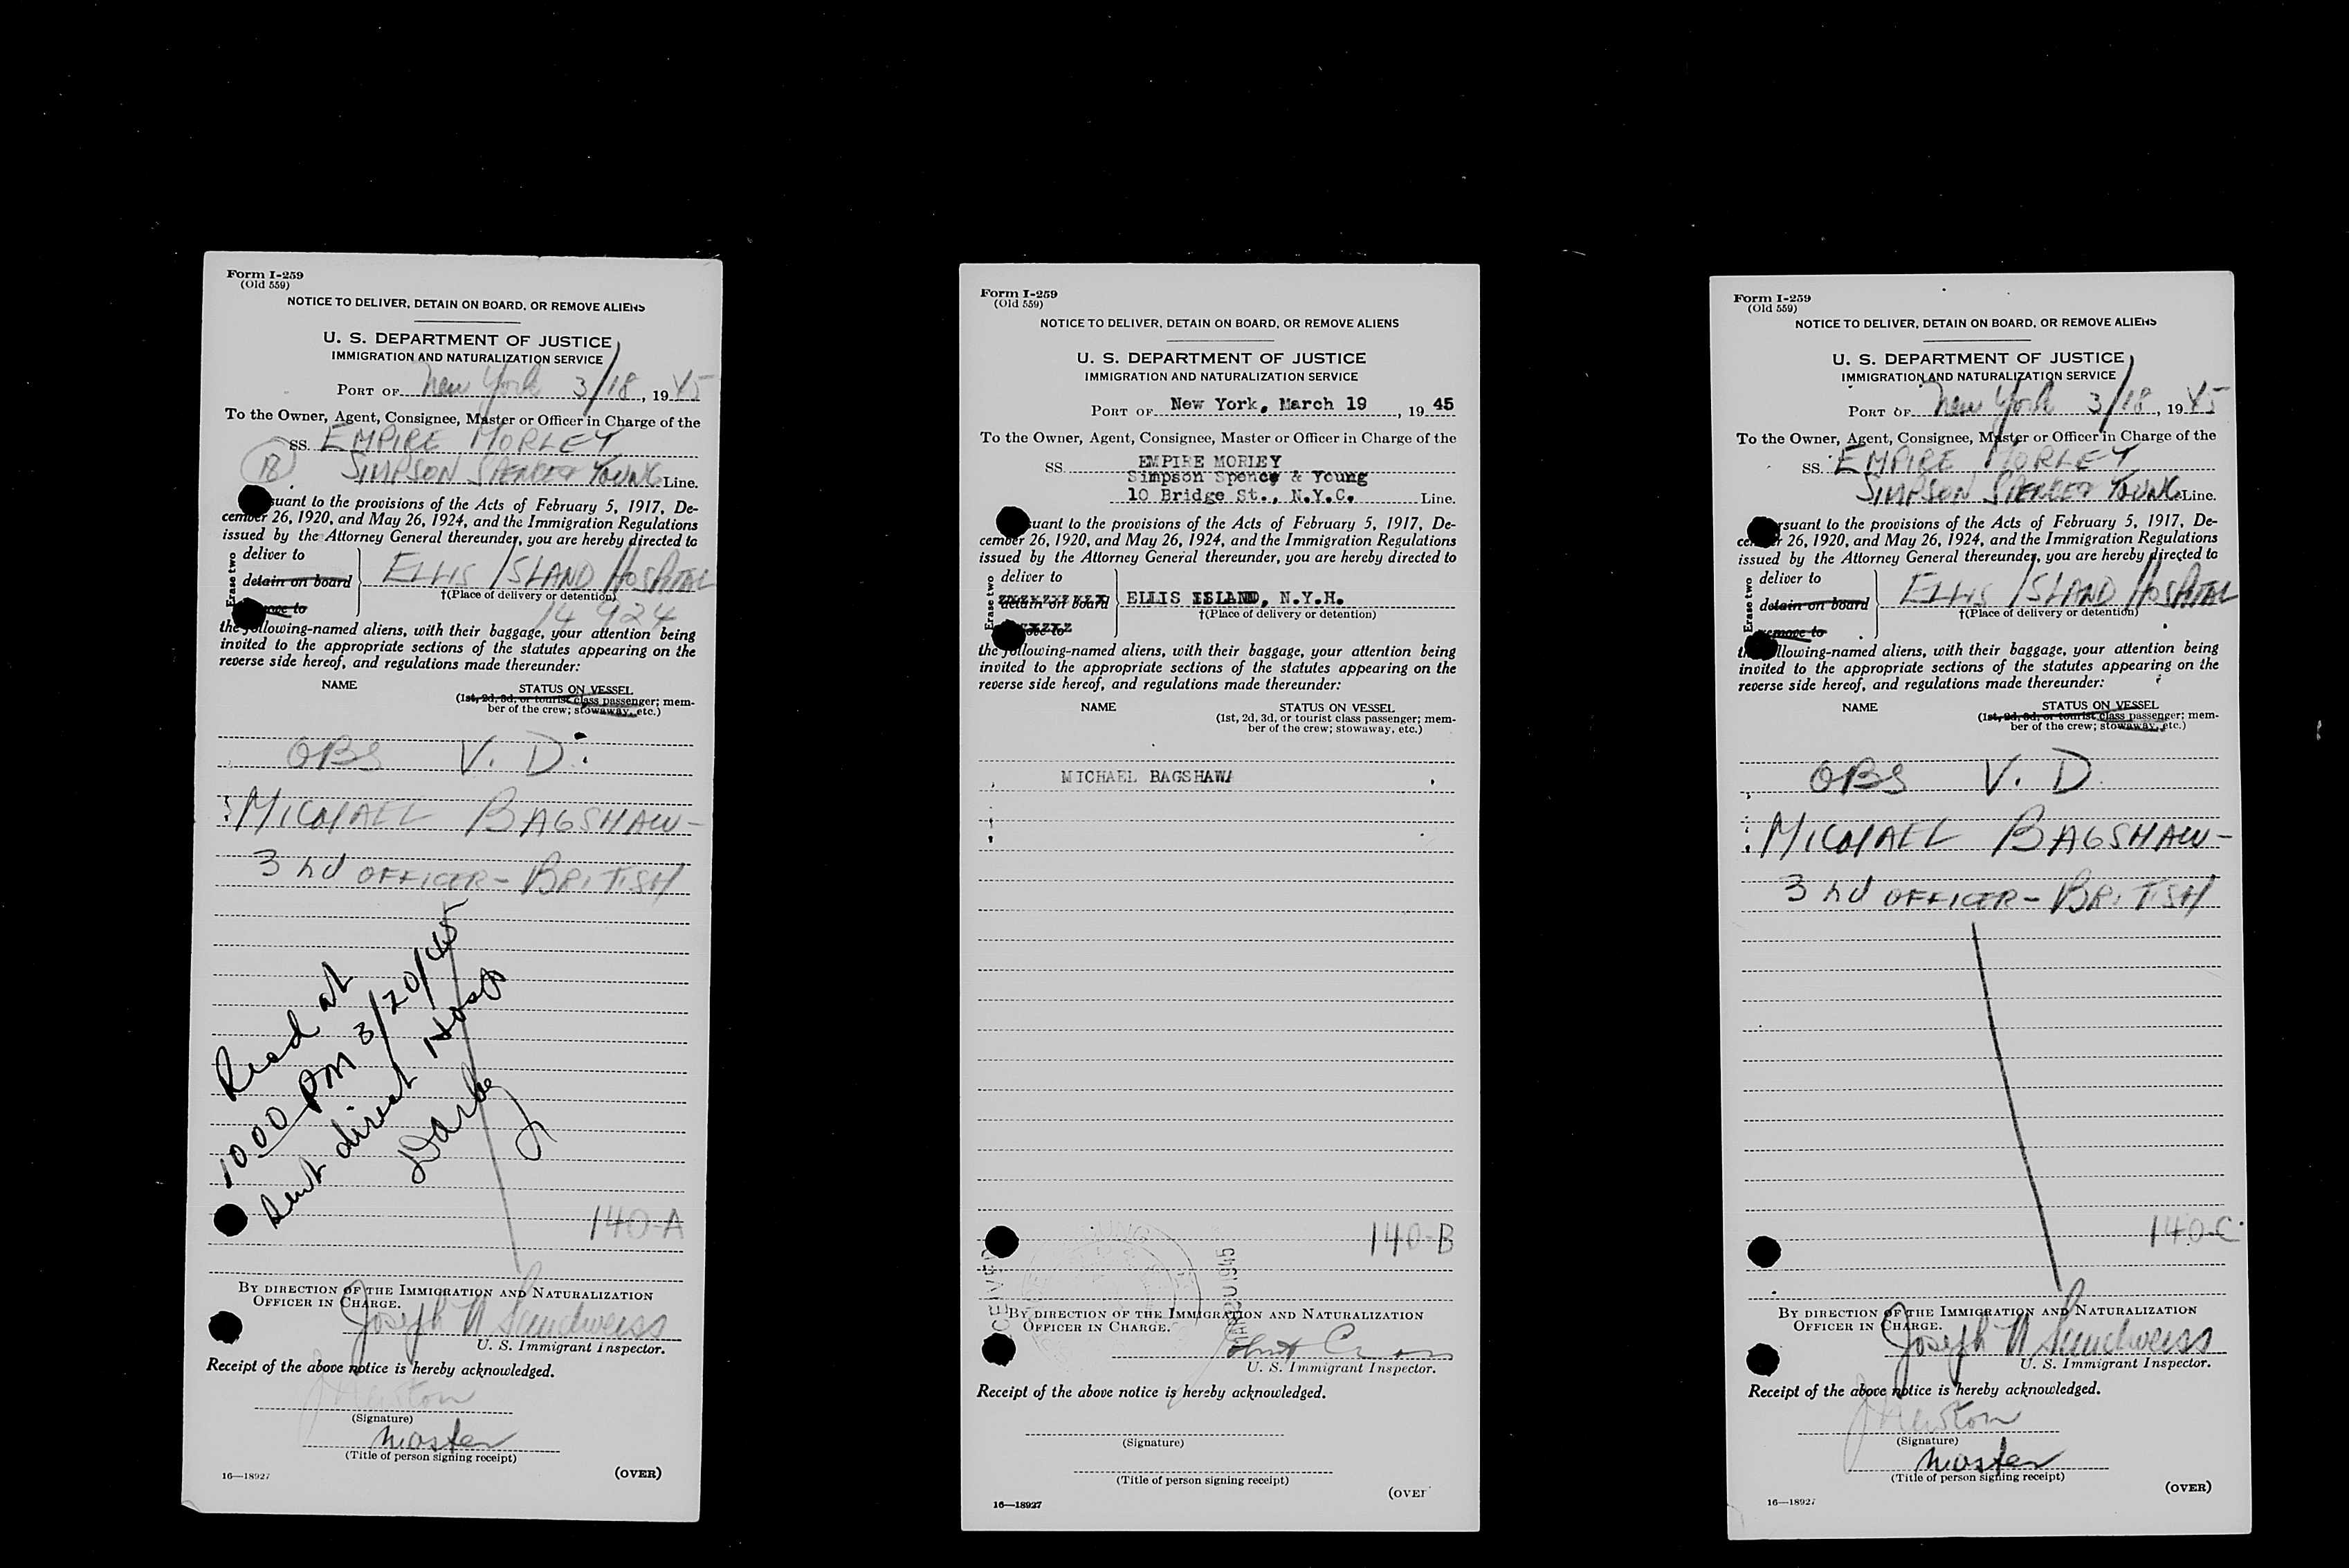 Form I-259
(Old 559)
NOTICE TO DELIVER, DETAIN ON BOARD, OR REMOVE ALIENS
U. S. DEPARTMENT OF JUSTICE
IMMIGRATION AND NATURALIZATION SERVICE
PORT OF New York 3/18, 1945
To the Owner, Agent, Consignee, Master or Officer in Charge of the
SS. EMPIRE MORLEY
18 SIMPSON SPENCE & YOUNG Line.
suant to the provisions of the Acts of February 5, 1917, De-
cember 26, 1920, and May 26, 1924, and the Immigration Regulations
issued by the Attorney General thereunder, you are hereby directed to
Erase two
deliver to
detain on board
ELLIS ISLAND HOSPITAL
†(Place of delivery or detention)
ove to
14924
the following-named aliens, with their baggage, your attention being
invited to the appropriate sections of the statutes appearing on the
reverse side hereof, and regulations made thereunder:
NAME STATUS ON VESSEL
(1st, 2d, 3d, or tourist class passenger; mem-
ber of the crew; stowaway, etc.)
OBS V. D.
MICHAEL BAGSHAW-
3rd OFFICER - BRITISH
Recd at
10 00 PM 3/20/45
Sent direct Hosp
Darby
140-A
BY DIRECTION OF THE IMMIGRATION AND NATURALIZATION
OFFICER IN CHARGE.
Joseph N Sandweiss
U. S. Immigrant Inspector.
Receipt of the above notice is hereby acknowledged.
J Newton
(Signature)
Master
(Title of person signing receipt)
16—18927 (OVER)
Form I-259
(Old 559)
NOTICE TO DELIVER, DETAIN ON BOARD, OR REMOVE ALIENS
U. S. DEPARTMENT OF JUSTICE
IMMIGRATION AND NATURALIZATION SERVICE
PORT OF New York, March 19, 1945
To the Owner, Agent, Consignee, Master or Officer in Charge of the
SS. EMPIRE MORLEY
Simpson Spence & Young
10 Bridge St., N.Y.C. Line.
uant to the provisions of the Acts of February 5, 1917, De-
cember 26, 1920, and May 26, 1924, and the Immigration Regulations
issued by the Attorney General thereunder, you are hereby directed to
Erase two
deliver to
detain on board
ELLIS ISLAND, N.Y.H.
†(Place of delivery or detention)
ove to
the following-named aliens, with their baggage, your attention being
invited to the appropriate sections of the statutes appearing on the
reverse side hereof, and regulations made thereunder:
NAME STATUS ON VESSEL
(1st, 2d, 3d, or tourist class passenger; mem-
ber of the crew; stowaway, etc.)
MICHAEL BAGSHAW
140-B
MAR 20 1945
BY DIRECTION OF THE IMMIGRATION AND NATURALIZATION
OFFICER IN CHARGE.
U. S. Immigrant Inspector.
Receipt of the above notice is hereby acknowledged.
(Signature)
(Title of person signing receipt)
16—18927 (OVER
Form I-259
(Old 559)
NOTICE TO DELIVER, DETAIN ON BOARD, OR REMOVE ALIENS
U. S. DEPARTMENT OF JUSTICE
IMMIGRATION AND NATURALIZATION SERVICE
PORT OF New York 3/18, 1945
To the Owner, Agent, Consignee, Master or Officer in Charge of the
SS. EMPIRE MORLEY
SIMPSON SPENCE & YOUNG Line.
rsuant to the provisions of the Acts of February 5, 1917, De-
cember 26, 1920, and May 26, 1924, and the Immigration Regulations
issued by the Attorney General thereunder, you are hereby directed to
Erase two
deliver to
detain on board
ELLIS ISLAND HOSPITAL
†(Place of delivery or detention)
remove to
the following-named aliens, with their baggage, your attention being
invited to the appropriate sections of the statutes appearing on the
reverse side hereof, and regulations made thereunder:
NAME STATUS ON VESSEL
(1st, 2d, 3d, or tourist class passenger; mem-
ber of the crew; stowaway, etc.)
OBS V. D.
MICHAEL BAGSHAW-
3rd OFFICER - BRITISH
140-C
BY DIRECTION OF THE IMMIGRATION AND NATURALIZATION
OFFICER IN CHARGE.
Joseph N Sandweiss
U. S. Immigrant Inspector.
Receipt of the above notice is hereby acknowledged.
J Newton
(Signature)
Master
(Title of person signing receipt)
16—18927 (OVER)